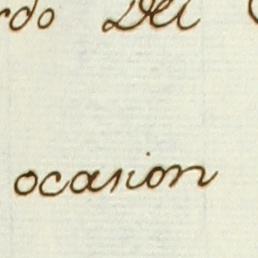 rdo Del
ocasion